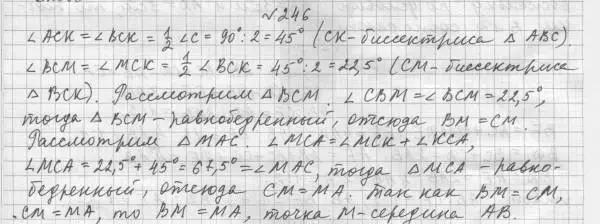 №246
∠ACK = ∠BCK = 1/2 ∠C = 90° : 2 = 45° (CK - биссектриса △ ABC).
∠BCM = ∠MCK = 1/2 ∠BCK = 45° : 2 = 22,5° (CM - биссектриса
△ BCK). Рассмотрим △ BCM. ∠CBM = ∠BCM = 22,5°,
тогда △ BCM - равнобедренный, отсюда BM = CM.
Рассмотрим △ MAC. ∠MCA = ∠MCK + ∠KCA,
∠MCA = 22,5° + 45° = 67,5° = ∠MAC, тогда △ MCA - равно-
бедренный, отсюда CM = MA. Так как BM = CM,
CM = MA, то BM = MA, точка M - середина AB